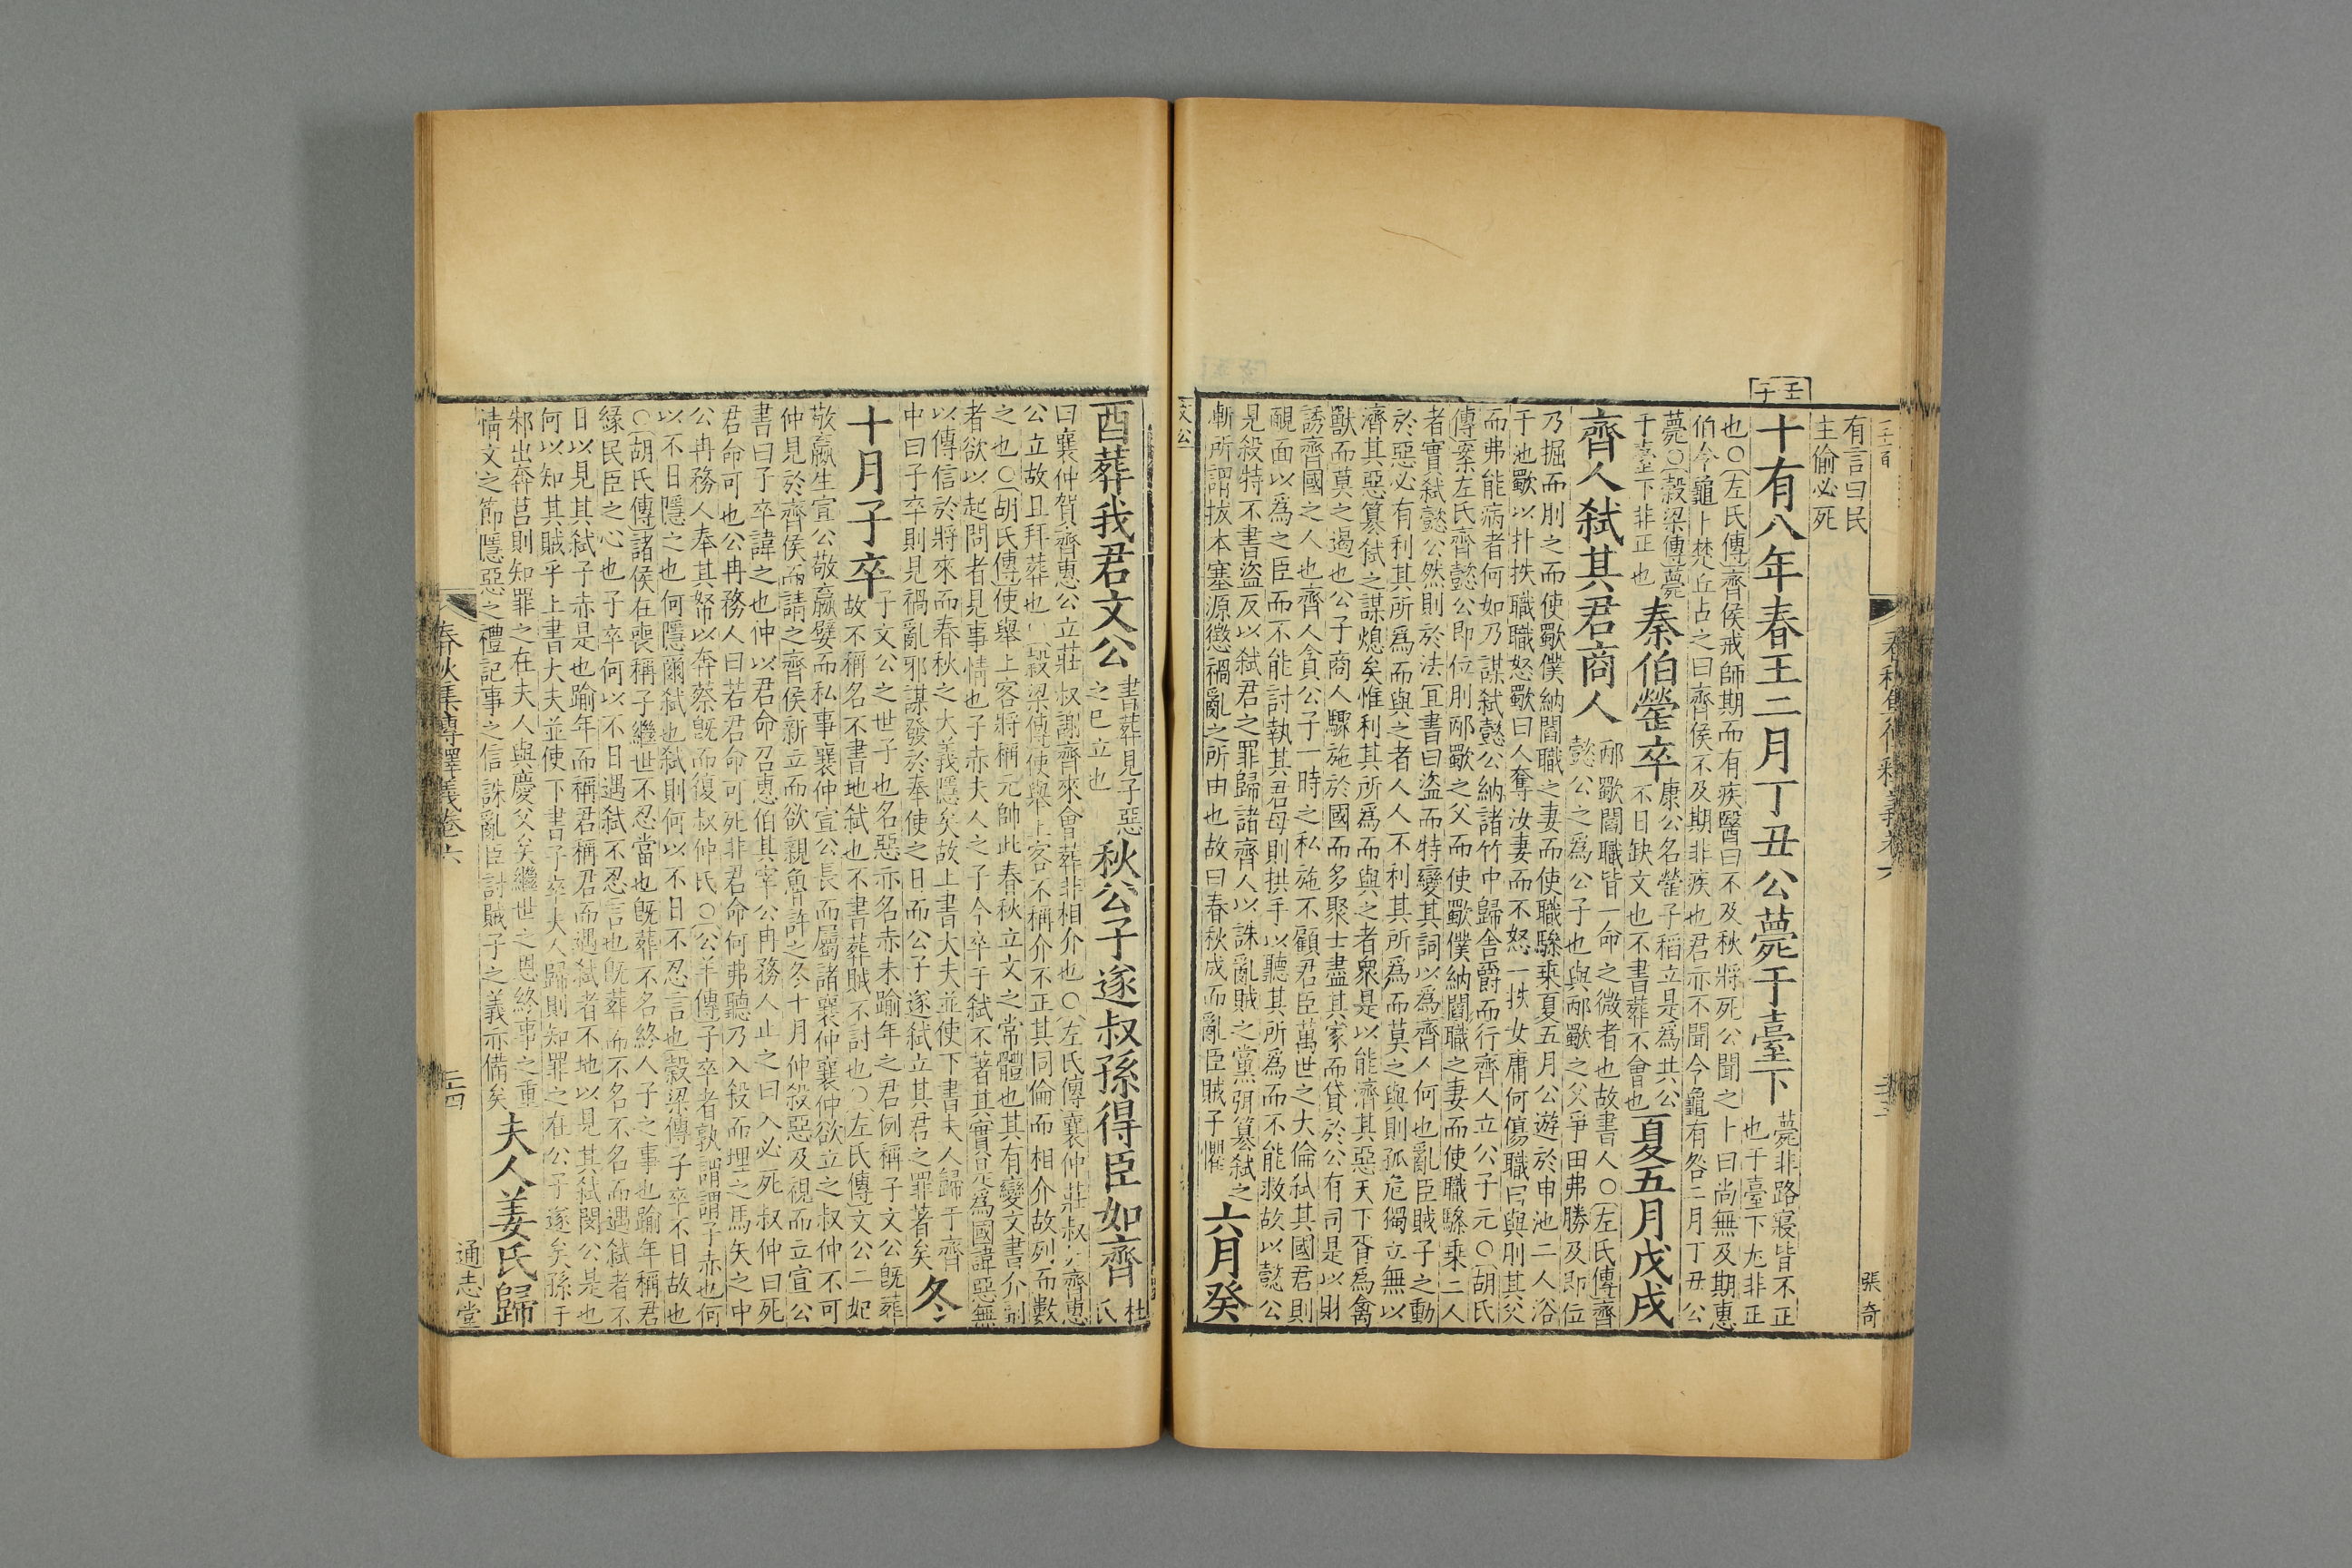 有言曰民
主偷必死
壬子
十有八年春王二月丁丑公薨于臺下
薨非路寢皆不正
也于臺下尤非正
也○左氏傳齊侯戒師期而有疾醫曰不及秋將死公聞之卜曰尚無及期惠
伯令龜卜楚丘占之曰齊侯不及期非疾也君亦不聞令龜有咎二月丁丑公
薨○穀梁傳薨
于臺下非正也
秦伯罃卒
康公名罃子稻立是為共公
不日缺文也不書葬不會也
夏五月戊戌
齊人弑其君商人
邴歜閻職皆一命之微者也故書人○左氏傳齊
懿公之為公子也與邴歜之父爭田弗勝及即位
乃掘而刖之而使歜僕納閻職之妻而使職驂乘夏五月公遊於申池二人浴
于池歜以扑抶職職怒歜曰人奪汝妻而不怒一抶女庸何傷職曰與刖其父
而弗能病者何如乃謀弑懿公納諸竹中歸舍爵而行齊人立公子元○胡氏
傳案左氏齊懿公即位刖邴歜之父而使歜僕納閻職之妻而使職驂乘二人
者實弑懿公然則於法宜書曰盜而特變其詞以為齊人何也亂臣賊子之動
於惡必有利其所為而與之者人人不利其所為而莫之與則孤危獨立無以
濟其惡篡弑之謀熄矣惟利其所為而與之者衆是以能濟其惡天下胥為禽
獸而莫之遏也公子商人驟施於國而多聚士盡其家而貸於公有司是以財
誘齊國之人也齊人貪公子一時之私施不顧君臣萬世之大倫弑其國君則
靦面以為之臣而不能討執其君母則拱手以聽其所為而不能救故以懿公
見殺特不書盜反以弑君之罪歸諸齊人以誅亂賊之黨弭篡弑之
漸所謂拔本塞源懲禍亂之所由也故曰春秋成而亂臣賊子懼
六月癸
張奇
文公
酉葬我君文公
書葬見子惡
之已立也
秋公子遂叔孫得臣如齊
杜氏
曰襄仲賀齊惠公立莊叔謝齊來會葬非相介也○左氏傳襄仲莊叔如齊惠
公立故且拜葬也○穀梁傳使舉上客不稱介不正其同倫而相介故列而數
之也○胡氏傳使舉上客將稱元帥此春秋立文之常體也其有變文書介副
者欲以起問者見事情也子赤夫人之子今卒于弑不著其實是為國諱惡無
以傳信於將來而春秋之大義隱矣故上書大夫並使下書夫人歸于齊
中曰子卒則見禍亂邪謀發於奉使之日而公子遂弑立其君之罪著矣
冬
十月子卒
子文公之世子也名惡亦名赤未踰年之君例稱子文公既葬
故不稱名不書地弑也不書葬賊不討也○左氏傳文公二妃
敬嬴生宣公敬嬴嬖而私事襄仲宣公長而屬諸襄仲襄仲欲立之叔仲不可
仲見於齊侯而請之齊侯新立而欲親魯許之冬十月仲殺惡及視而立宣公
書曰子卒諱之也仲以君命召惠伯其宰公冉務人止之曰入必死叔仲曰死
君命可也公冉務人曰若君命可死非君命何弗聽乃入殺而埋之馬矢之中
公冉務人奉其帑以奔蔡既而復叔仲氏○公羊傳子卒者孰謂謂子赤也何
以不日隱之也何隱爾弑也弑則何以不日不忍言也穀梁傳子卒不日故也
○胡氏傳諸侯在喪稱子繼世不忍當也既葬不名終人子之事也踰年稱君
緣民臣之心也子卒何以不日遇弑不忍言也既葬而不名不名而遇弑者不
日以見其弑子赤是也踰年而稱君稱君而遇弑者不地以見其弑閔公是也
何以知其賊乎上書大夫並使下書子卒夫人歸則知罪之在公子遂矣孫于
邾出奔莒則知罪之在夫人與慶父矣繼世之恩終事之重
情文之節隱惡之禮記事之信誅亂臣討賊子之義亦備矣
夫人姜氏歸
春秋集傳釋義卷六
二四
通志堂